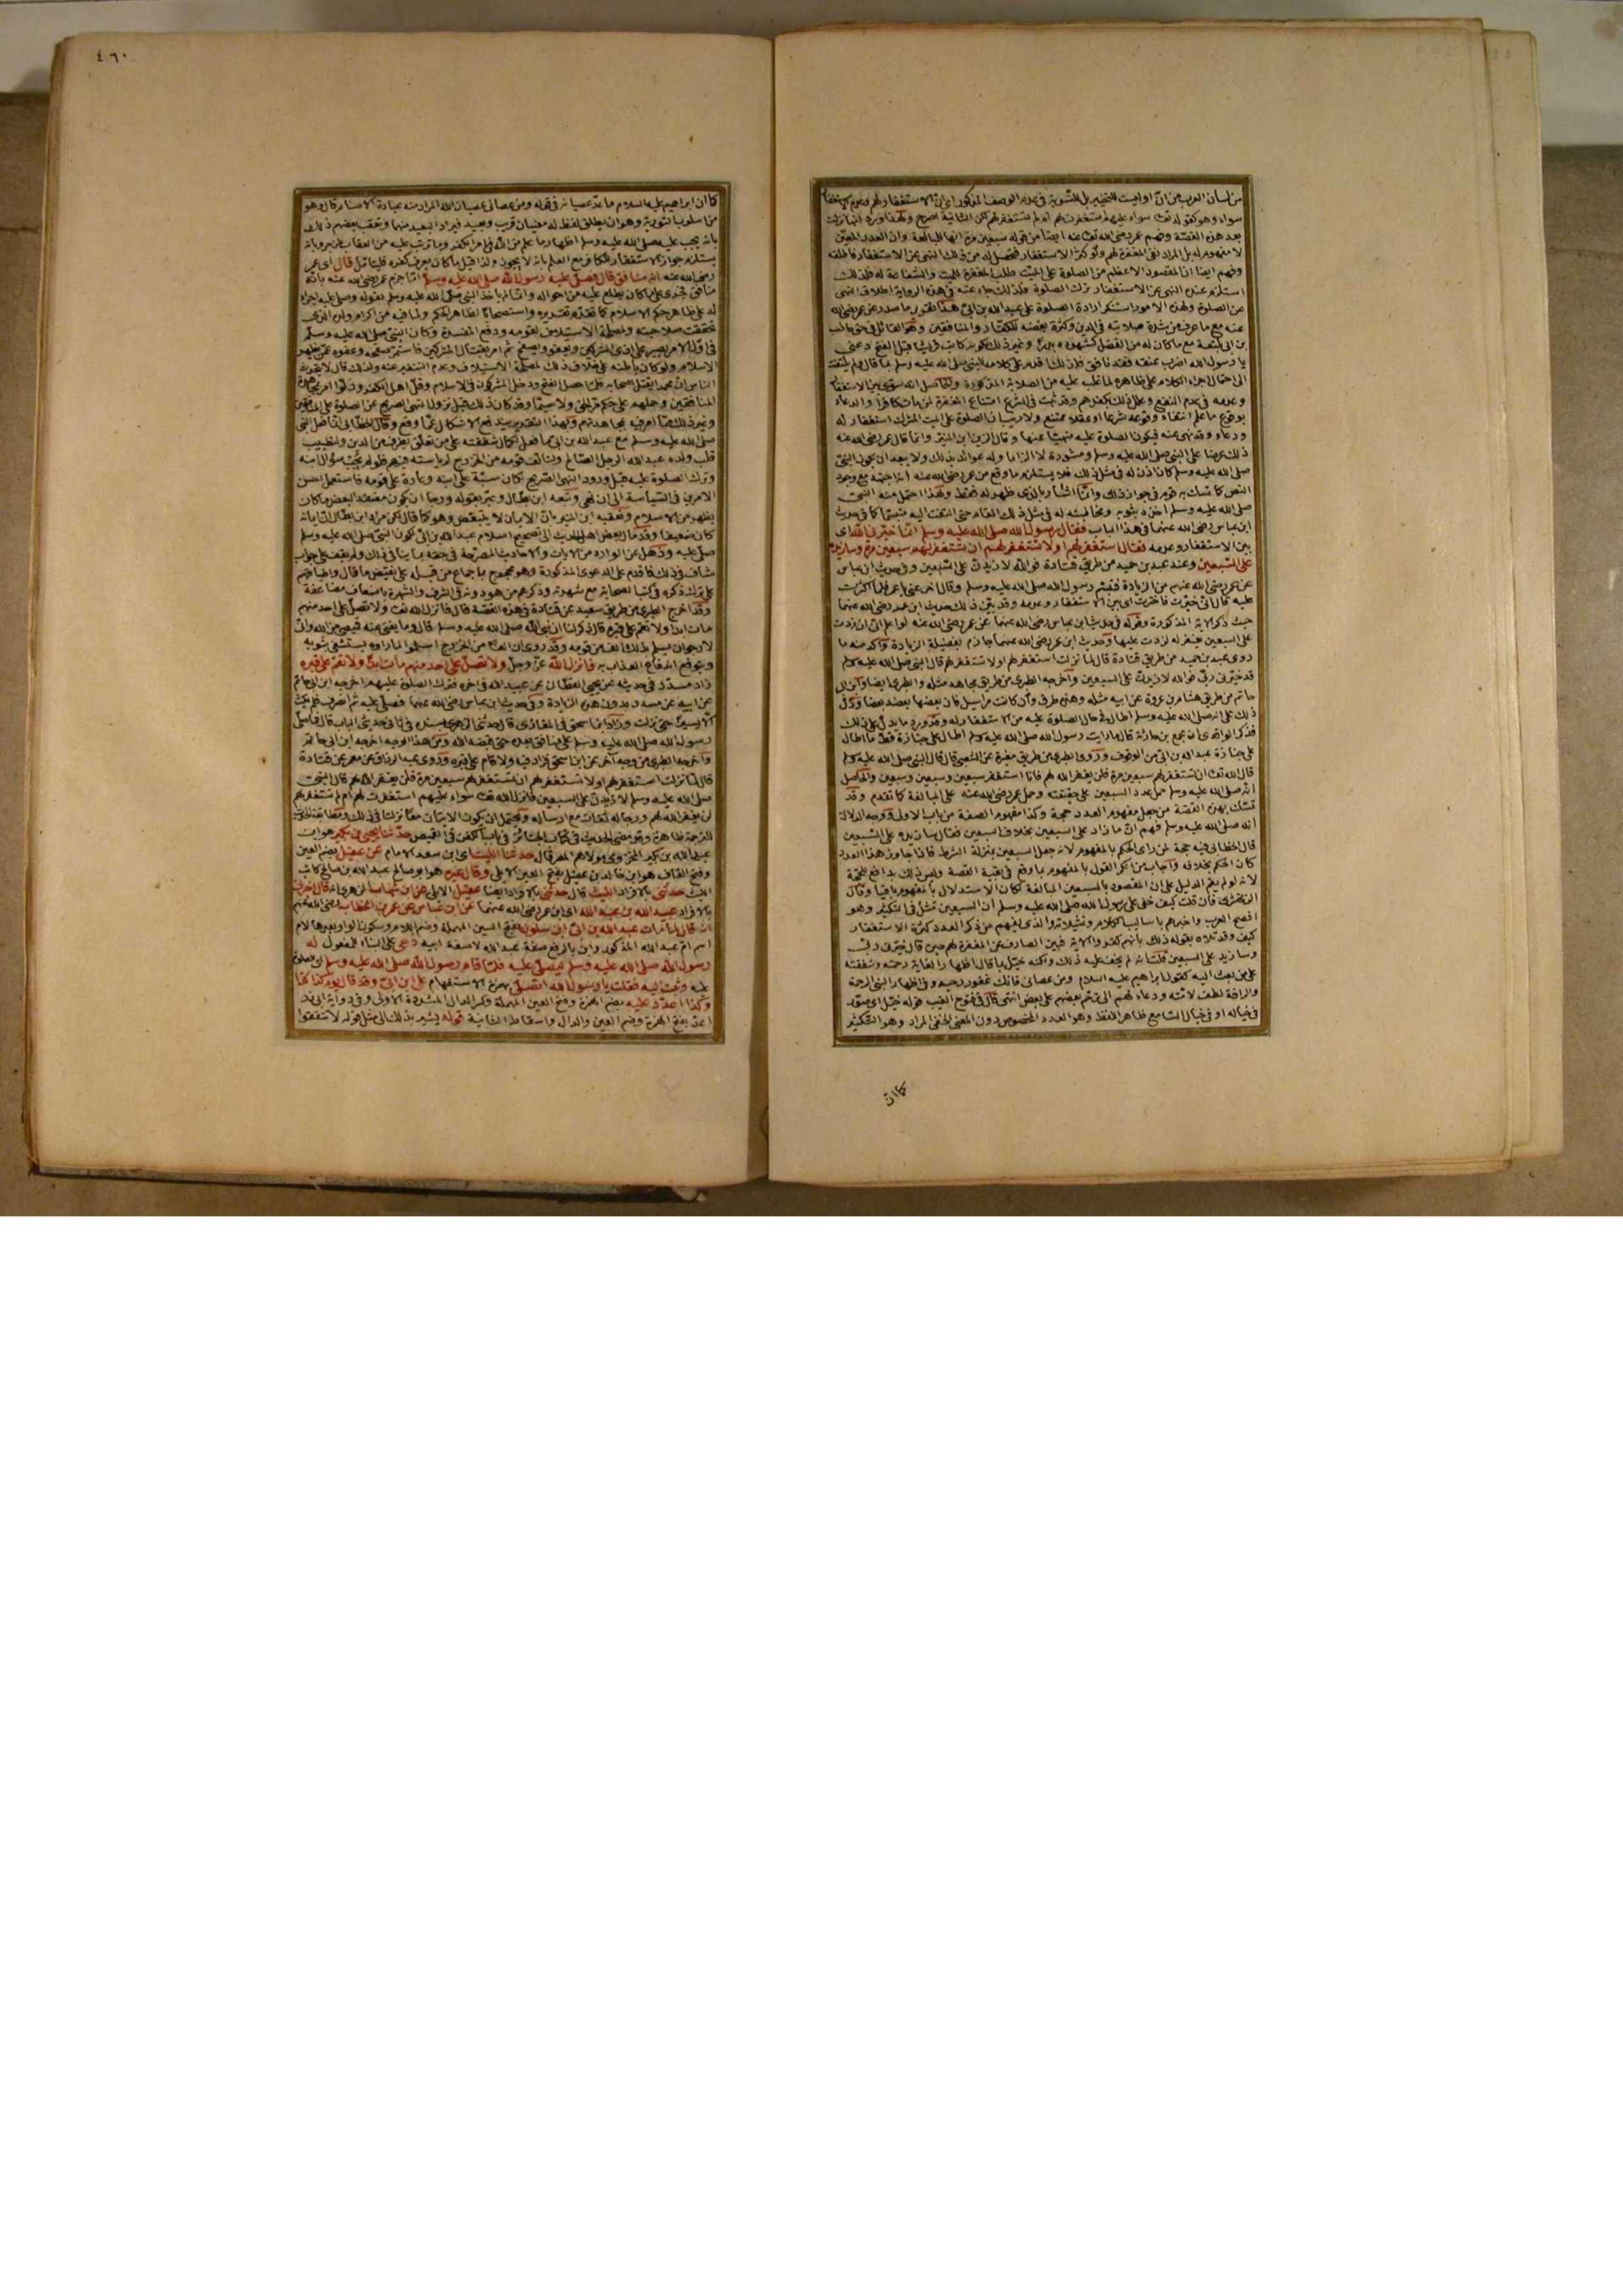 من لسان العرب من ان او ليست للتخيير بل للتسوية في عدم الوصف المذكور اي ان الاستغفار لهم وعدم الاستغفار
سواء وهو كقوله تعالى سواء عليهم استغفرت لهم ام لم تستغفر لهم لكن الثانية اصرح ولهذا ورد انها نزلت
بعد هذه القصة وفهم عمر رضي الله تعالى عنه ايضا من قوله سبعين مرة انها للمبالغة وان العدد المعين
لا مفهوم له بل المراد نفي المغفرة لهم ولو كثر الاستغفار فحصل له من ذلك النهي عن الاستغفار فاطلقه
وفهم ايضا ان المقصود الاعظم من الصلوة على الميت طلب المغفرة للميت والشفاعة له فلذلك
استلزم عنده النهي عن الاستغفار ترك الصلوة فلذلك جاء عنه في هذه الرواية اطلاق النهي
عن الصلوة ولهذه الامور استنكر ارادة الصلوة على عبد الله بن ابي هذا تقرير ما صدر عن عمر رضي الله
عنه مع ما عرف من شدة صلابته في الدين وكثرة بغضه للكفار والمنافقين وهو القائل في حق حاطب
بن ابي بلتعة مع ما كان له من الفضل كشهوده بدرا وغير ذلك لكونه كاتب قريشا قبل الفتح دعني
يا رسول الله اضرب عنقه فقد نافق فلذلك اقدم على كلامه للنبي صلى الله عليه وسلم بما قال ولم يلتفت
الى احتمال اجراء الكلام على ظاهره لما غلب عليه من الصلابة المذكورة
ذلك عرضا على النبي صلى الله عليه وسلم ومشورة لا الزاما وله عوائد بذلك ولا يبعد ان يكون النبي
صلى الله عليه وسلم كان اذن له في مثل ذلك فلا يستلزم ما وقع من عمر رضي الله عنه انه اجتهد مع وجود
النص كما تمسك به قوم في جواز ذلك وانما اشار بالذي ظهر له فقط ولهذا احتمل منه النبي
صلى الله عليه وسلم اخذه بثوبه ومخاطبته له في مثل ذلك المقام حتى التفت اليه متبسما كما في حديث
ابن عباس رضي الله عنهما في هذا الباب فقال رسول الله صلى الله عليه وسلم انما خيرني الله اي
بين الاستغفار وعدمه فقال استغفر لهم او لا تستغفر لهم ان تستغفر لهم سبعين مرة وسازيده
على السبعين وعند عبد بن حميد من طريق قتادة فوالله لازيدن على السبعين وفي حديث ابن عباس
عن عمر رضي الله عنهم من الزيادة فتبسم رسول الله صلى الله عليه وسلم وقال اخر عني يا عمر فلما اكثرت
عليه قال اني خيرت فاخترت اي بين الاستغفار وعدمه وقد بين ذلك حديث ابن عمر رضي الله عنهما
حيث ذكر الاية المذكورة وقوله في حديث ابن عباس رضي الله عنهما عن عمر رضي الله عنه لو اعلم اني ان زدت
على السبعين يغفر له لزدت عليها وحديث ابن عمر رضي الله عنهما جازم بفضيلة الزيادة واكد منه ما
روى عبد بن حميد من طريق قتادة قال لما نزلت استغفر لهم او لا تستغفر لهم قال النبي صلى الله عليه وسلم
قد خيرني ربي فوالله لازيدن على السبعين واخرجه الطبري من طريق مجاهد مثله والطبري ايضا وابن ابي
حاتم من طريق هشام بن عروة عن ابيه مثله وهذه طرق وان كانت مراسيل فان بعضها يعضد بعضا ودل
ذلك على انه صلى الله عليه وسلم اطال في حال الصلوة عليه من الاستغفار له وقد ورد ما يدل على ذلك
فذكر الواقدي ان مجمع بن جارية قال ما رايت رسول الله صلى الله عليه وسلم اطال على جنازة قط ما اطال
على جنازة عبد الله بن ابي من الوقوف وروى الطبري من طريق مغيرة عن الشعبي قال قال النبي صلى الله عليه وسلم
قال الله تعالى ان تستغفر لهم سبعين مرة فلن يغفر الله لهم فانا استغفر سبعين وسبعين وسبعين والحاصل
انه صلى الله عليه وسلم حمل عدد السبعين على حقيقته وحمل عمر رضي الله عنه على المبالغة كما تقدم وقد
تمسك بهذه القصة من جعل مفهوم العدد حجة وكذا مفهوم الصفة من باب الاولى ووجه الدلالة
انه صلى الله عليه وسلم فهم ان ما زاد على السبعين بخلاف السبعين فقال سازيده على السبعين
قال الخطابي فيه حجة لمن راى الحكم بالمفهوم لانه جعل السبعين بمنزلة الشرط فاذا جاوز هذا العدد
كان الحكم بخلافه واجاب من انكر القول بالمفهوم بما وقع في بقية القصة وليس ذلك بدافع للحجة
لانه لو لم يقم الدليل على ان المقصود بالسبعين المبالغة لكان الاستدلال بالمفهوم باقيا وقال
الزمخشري فان قلت كيف خفي على رسول الله صلى الله عليه وسلم ان السبعين مثل في التكثير وهو
افصح العرب واخبرهم باساليب الكلام وتمثيلاته والذي يفهم من ذكر العدد كثرة الاستغفار
كيف وقد تلاه بقوله ذلك بانهم كفروا الاية فبين الصارف عن المغفرة لهم حين قال خيرني ربي
وسازيد على السبعين قلت انه لم يخف عليه ذلك ولكنه خيل بما قال اظهارا لغاية رحمته وشفقته
على من بعث اليه كقول ابراهيم عليه السلام ومن عصاني فانك غفور رحيم وفي اظهار النبي الرحمة
والرافة لطف لامته ودعاء لهم الى ترحم بعضهم على بعض انتهى قال في فتوح الغيب قوله خيل اي صور
في خياله او في خيال السامع ظاهر اللفظ وهو العدد المخصوص دون المعنى الخفي المراد وهو التكثير
كما ان
٤٦٠
كما ان ابراهيم عليه السلام ما عد عصيانه في قوله ومن عصاني عصيان الله المراد منه عبادة الاصنام قال وهو
من اسلوب التورية وهو ان يطلق لفظ له معنيان قريب وبعيد فيراد البعيد منهما وتعقب بعضهم ذلك
بانه يجب عليه صلى الله عليه وسلم اظهار ما علم من الله في امر الكفر وما يترتب عليه من العقاب
يستلزم جواز الاستغفار للكافر مع العلم بانه لا يجوز ولذا قيل ما كان يعرف كفره فليتامل قال اي عمر
رضي الله عنه انه منافق قال فصلى عليه رسول الله صلى الله عليه وسلم انما جزم عمر رضي الله عنه بانه
منافق جريا على ما كان يطلع عليه من احواله وانما لم ياخذ النبي صلى الله عليه وسلم بقوله وصلى عليه اجراء
له على ظاهر حكم الاسلام كما تقدم تقديره واستصحابا لظاهر الحكم ولما فيه من اكرام ولده الذي
تحققت صلاحيته ولمصلحة الاستيلاف لقومه ودفع المفسدة وكان النبي صلى الله عليه وسلم
في اول الامر يصبر على اذى المشركين ويعفو ويصفح ثم امر بقتال المشركين فاستمر صفحه وعفوه عمن يظهر
الاسلام ولو كان باطنه على خلاف ذلك لمصلحة الاستيلاف وعدم التنفير عنه ولذلك قال لا يتحدث
الناس ان محمدا يقتل اصحابه فلما حصل الفتح ودخل المشركون في الاسلام وقل اهل الكفر وذلوا امر بمجاهرة
المنافقين وحملهم على حكم مر الحق ولا سيما وقد كان ذلك قبل نزول النهي الصريح عن الصلوة على المنافقين
وغير ذلك مما امر فيه بمجاهدتهم وبهذا التقرير يندفع الاشكال عما وقع وقال الخطابي انما فعل النبي
صلى الله عليه وسلم مع عبد الله بن ابي ما فعل لكمال شفقته على من تعلق بطرف من الدين ولتطييب
قلب ولده عبد الله الرجل الصالح ولتالف قومه من الخزرج لرياسته فيهم فلو لم يجب سؤال ابنه
وترك الصلوة عليه قبل ورود النهي الصريح لكان سبة على ابنه وعارا على قومه فاستعمل احسن
الامرين في السياسة الى ان نهي وتبعه ابن بطال وعبر بقوله ورجا ان يكون معتقدا لبعض ما كان
يظهر من الاسلام وتعقبه ابن المنير بان الايمان لا يتبعض وهو كما قال لكن مراد ابن بطال ان ايمانه
كان ضعيفا وقد مال بعض اهل الحديث الى تصحيح اسلام عبد الله بن ابي لكون النبي صلى الله عليه وسلم
صلى عليه وذهل عن الوارد من الايات والاحاديث المصرحة في حقه بما ينافي ذلك ولم يقف على جواب
شاف في ذلك فاقدم على الدعوى المذكورة وهو محجوج باجماع من قبله على نقيض ما قال واطباقهم
على ترك ذكره في كتب الصحابة مع شهرته وذكرهم من هو دونه في الشرف والشهرة باضعاف مضاعفة
وقد اخرج الطبري من طريق سعيد عن قتادة في هذه القصة قال فانزل الله تعالى ولا تصل على احد منهم
مات ابدا ولا تقم على قبره قال ذكر لنا ان نبي الله صلى الله عليه وسلم قال وما يغني عنه قميصي من الله واني
لارجو ان يسلم بذلك الف من قومه وقد روي ان الفا من الخزرج اسلموا لما راوه يستشفي بثوبه
ويتوقع اندفاع العذاب به فانزل الله عز وجل ولا تصل على احد منهم مات ابدا ولا تقم على قبره
زاد مسدد في حديثه عن يحيى القطان عن عبيد الله في اخره فترك الصلوة عليهم اخرجه ابن ابي حاتم
عن ابيه عن مسدد بدون هذه الزيادة وفي حديث ابن عباس رضي الله عنهما فصلى عليه ثم انصرف فلم يمكث
الا يسيرا حتى نزلت وزاد ابن اسحق في المغازي قال حدثني الزهري بسنده في ثاني حديثي الباب قال فما صلى
رسول الله صلى الله عليه وسلم على منافق بعده حتى قبضه الله ومن هذا الوجه اخرجه ابن ابي حاتم
واخرجه الطبري من وجه آخر عن ابن اسحق فزاد فيه ولا قام على قبره وروى عبد الرزاق عن معمر عن قتادة
قال لما نزلت استغفر لهم او لا تستغفر لهم ان تستغفر لهم سبعين مرة فلن يغفر الله لهم قال النبي
صلى الله عليه وسلم لازيدن على السبعين فانزل الله تعالى سواء عليهم استغفرت لهم ام لم تستغفر لهم
لن يغفر الله لهم ورجاله ثقات مع ارساله ويحتمل ان يكون الايتان معا نزلتا في ذلك ومطابقة الحديث
للترجمة ظاهرة وقد مضى الحديث في كتاب الجنائز في باب الكفن في القميص حدثنا يحيى بن بكير هو ابن
عبد الله بن بكير المخزومي مولاهم المصري قال حدثنا الليث اي ابن سعد الامام عن عقيل بضم العين
وفتح القاف هو ابن خالد بن عقيل بفتح العين الايلي وقال غيره هو ابو صالح عبد الله بن صالح كاتب
الليث حدثني بالافراد الليث قال حدثني بالافراد ايضا عقيل الايلي عن ابن شهاب الزهري انه قال اخبرني
بالافراد عبيد الله بن عبد الله اي ابن عمر رضي الله عنهما عن ابن عباس عن عمر بن الخطاب رضي الله عنهم
انه قال لما مات عبد الله بن ابي ابن سلول بفتح السين المهملة وضم اللام وسكون الواو بعدها لام
اسم ام عبد الله المذكور وابن بالرفع صفة عبد الله لا صفة ابيه دعي على البناء للمفعول له
رسول الله صلى الله عليه وسلم ليصلي عليه فلما قام رسول الله صلى الله عليه وسلم
عليه وثبت اليه فقلت يا رسول الله اتصلي بهمزة الاستفهام على ابن ابي وقد قال يوم كذا كذا
وكذا اعدد عليه بضم الهمزة وفتح العين المهملة وكسر الدال المشددة الاولى وفي رواية ابي ذر
اعد بفتح الهمزة وضم العين والدال واسقاط الثانية قوله يشير بذلك الى مثل قوله لا تنفقوا